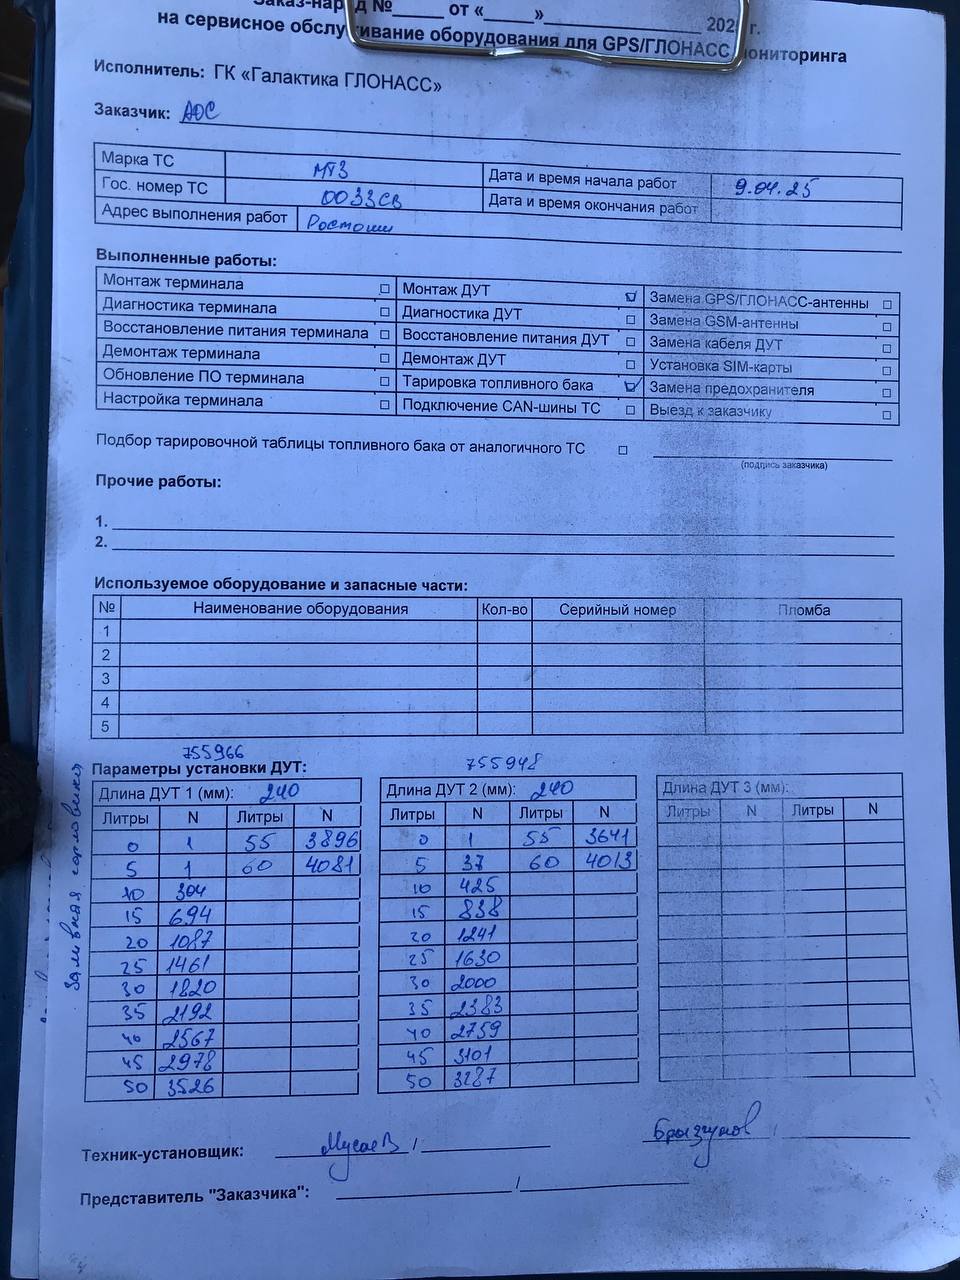 Заказ-наряд №_____ от «_____»__________________ 202 г.
на сервисное обслуживание оборудования для GPS/ГЛОНАСС мониторинга
Исполнитель: ГК «Галактика ГЛОНАСС»
Заказчик: АОС
Марка ТС МТЗ Дата и время начала работ 9.04.25
Гос. номер ТС 0033СВ Дата и время окончания работ
Адрес выполнения работ Ростоши
Выполненные работы:
Монтаж терминала ☐ Монтаж ДУТ ☑ Замена GPS/ГЛОНАСС-антенны ☐
Диагностика терминала ☐ Диагностика ДУТ ☐ Замена GSM-антенны ☐
Восстановление питания терминала ☐ Восстановление питания ДУТ ☐ Замена кабеля ДУТ ☐
Демонтаж терминала ☐ Демонтаж ДУТ ☐ Установка SIM-карты ☐
Обновление ПО терминала ☐ Тарировка топливного бака ☑ Замена предохранителя ☐
Настройка терминала ☐ Подключение CAN-шины ТС ☐ Выезд к заказчику ☐
Подбор тарировочной таблицы топливного бака от аналогичного ТС ☐
(подпись заказчика)
Прочие работы:
1.
2.
Используемое оборудование и запасные части:
№ Наименование оборудования Кол-во Серийный номер Пломба
1
2
3
4
5
755966 755948
Параметры установки ДУТ:
Длина ДУТ 1 (мм): 240 Длина ДУТ 2 (мм): 240 Длина ДУТ 3 (мм):
Литры N Литры N Литры N Литры N Литры N Литры N
0 1 55 3896 0 1 55 3641
5 1 60 4081 5 37 60 4013
10 304 10 425
15 694 15 838
20 1087 20 1241
25 1461 25 1630
30 1820 30 2000
35 2192 35 2383
40 2567 40 2759
45 2978 45 3101
50 3526 50 3287
Заливная горловина
Техник-установщик: Мусаев / Брызгунов /
Представитель "Заказчика": /